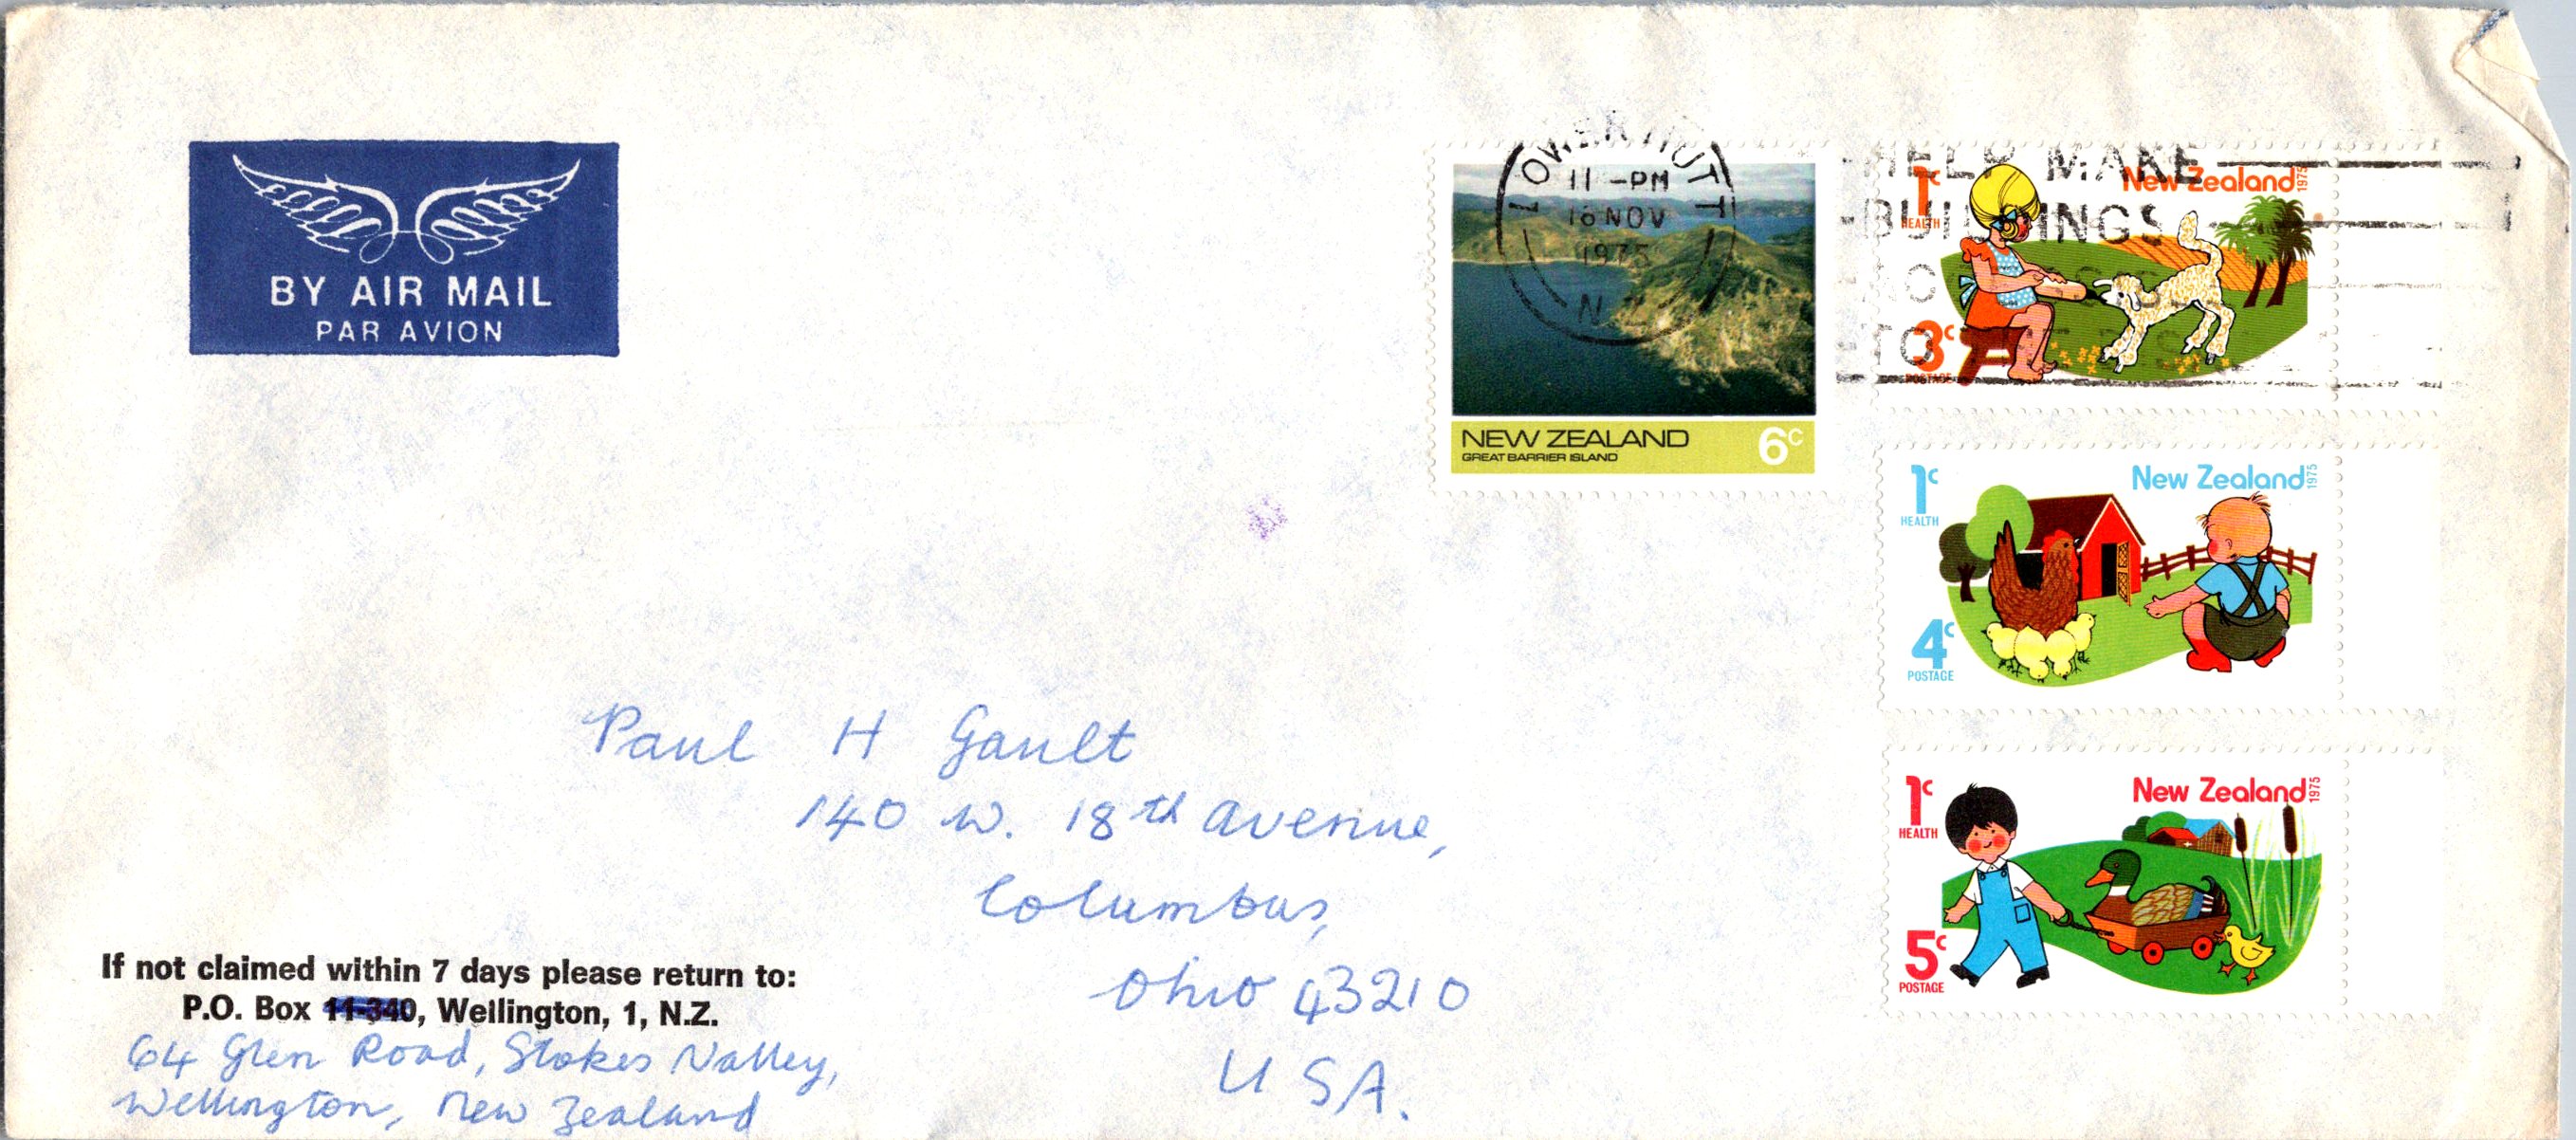 BY AIR MAIL
PAR AVION
LOWER HUTT
11 -PM
16 NOV
1975
HELP MAKE
BUILDINGS
TO
NEW ZEALAND 6c
GREAT BARRIER ISLAND
1c
HEALTH
New Zealand 1975
3c
POSTAGE
1c
HEALTH
New Zealand 1975
4c
POSTAGE
1c
HEALTH
New Zealand 1975
5c
POSTAGE
Paul H Gault
140 W. 18th Avenue,
Columbus,
Ohio 43210
U S A.
If not claimed within 7 days please return to:
P.O. Box 11-340, Wellington, 1, N.Z.
64 Glen Road, Stokes Valley,
Wellington, New Zealand